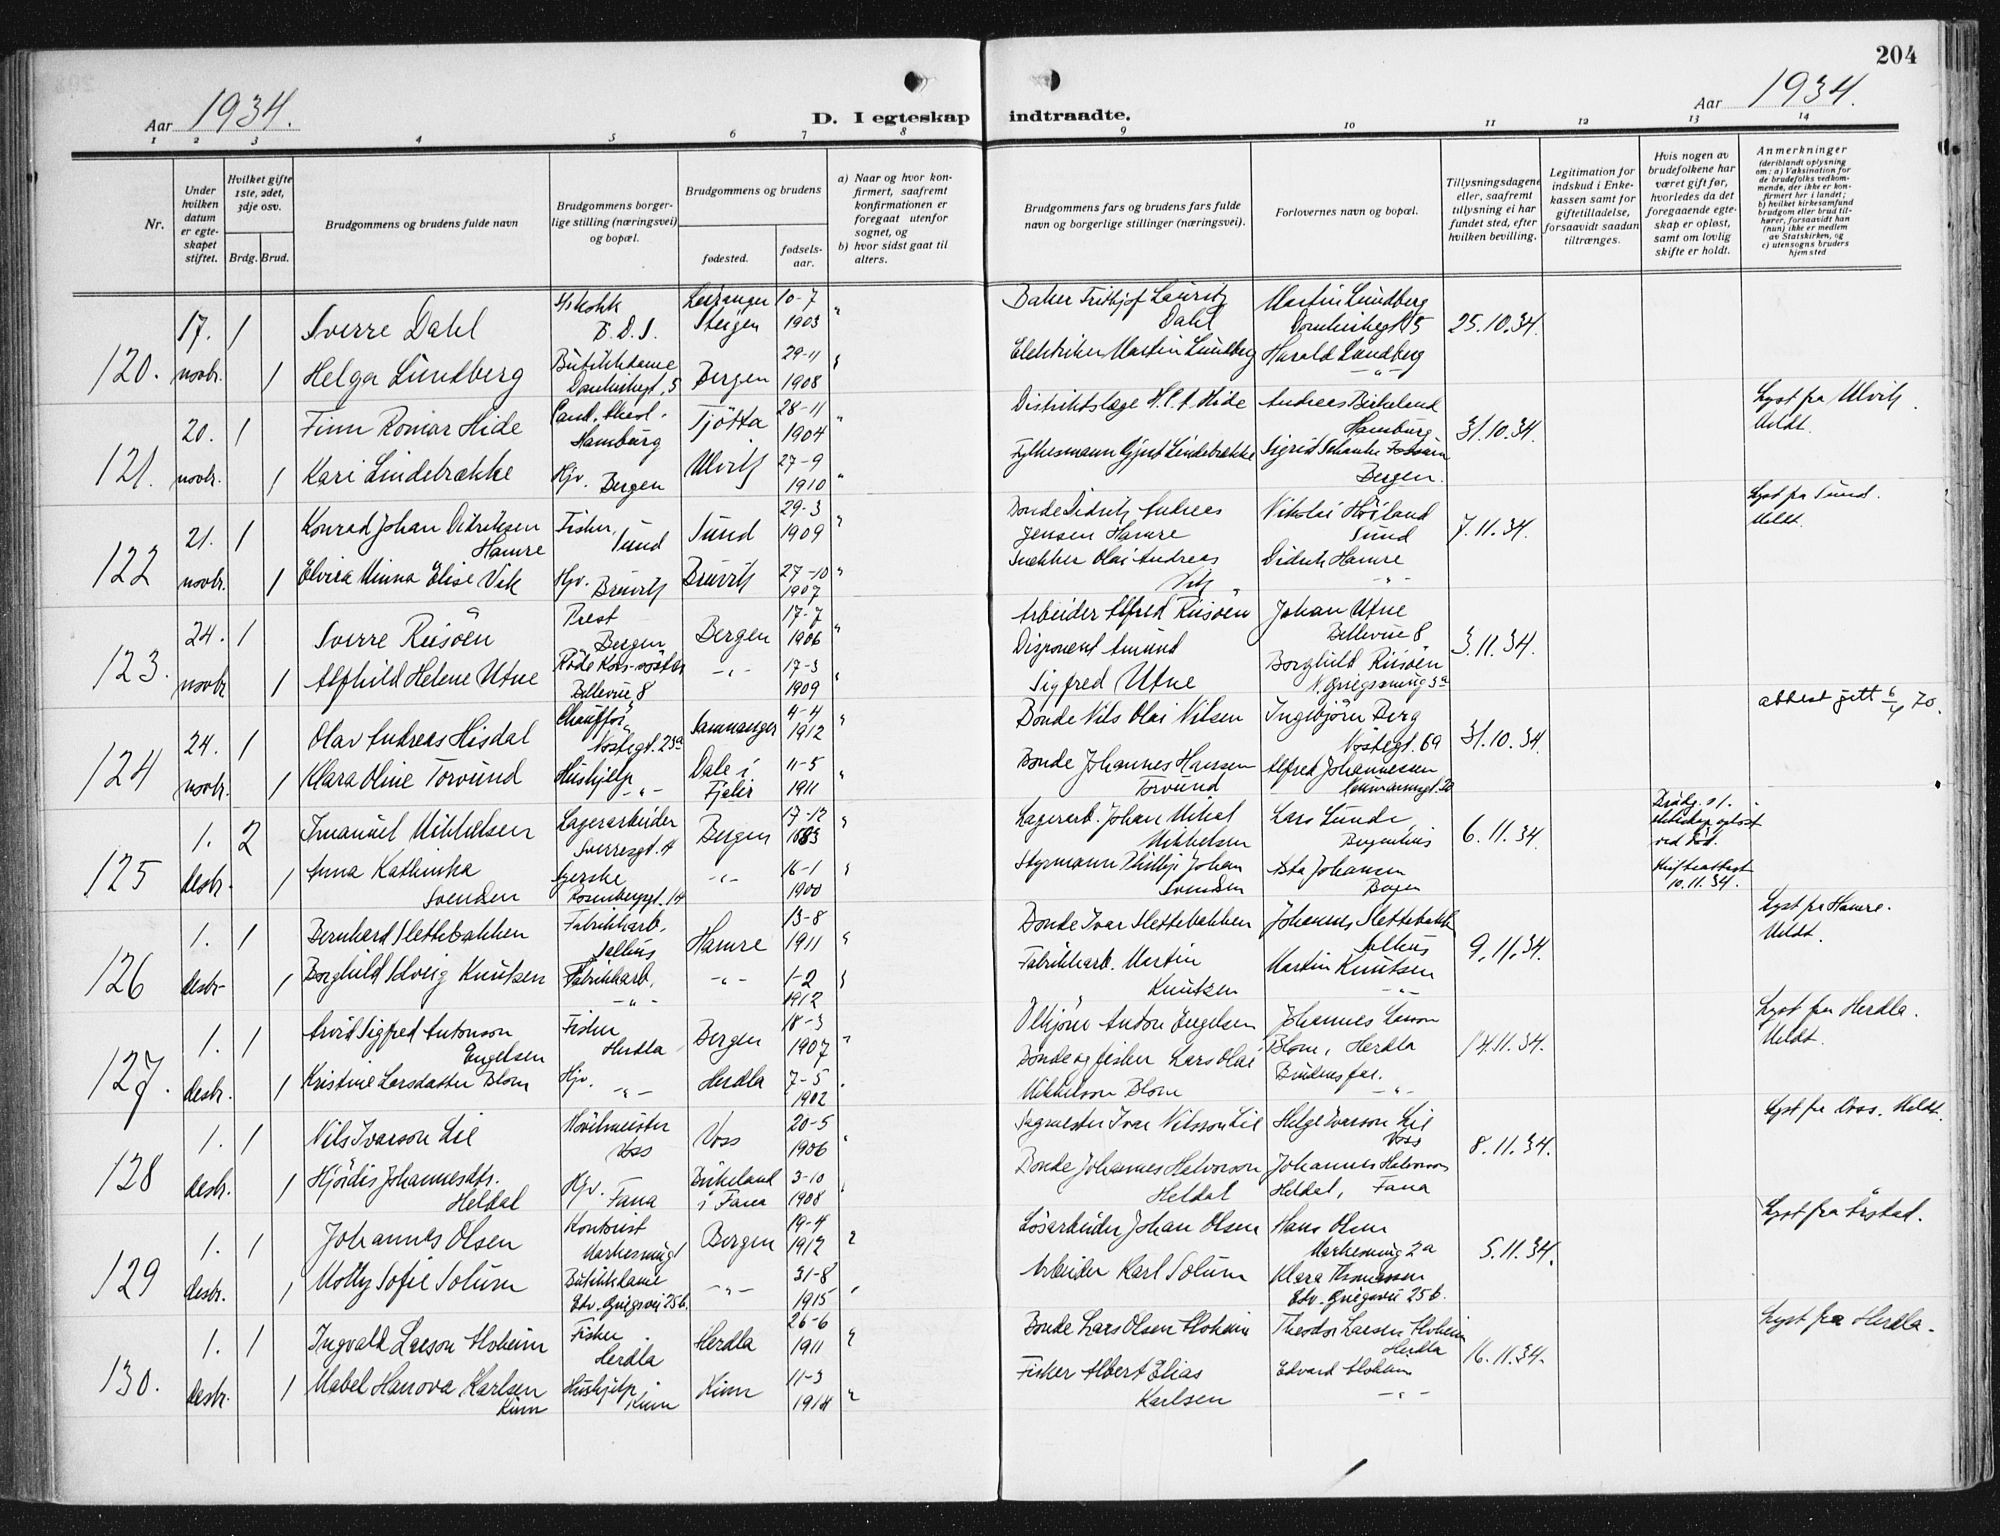 204
Aar 1934.
D. I egteskap indtraadte.
Aar 1934.
1 2 3 4 5 6 7 8 9 10 11 12 13 14
Nr.
Under hvilken datum er egteskapet stiftet.
Hvilket gifte 1ste, 2det, 3dje osv.
Brdg. Brud.
Brudgommens og brudens fulde navn
Brudgommens borgerlige stilling (næringsvei) og bopæl.
Brudgommens og brudens
fødested.
fødselsaar.
a) Naar og hvor konfirmert, saafremt konfirmationen er foregaat utenfor sognet, og
b) hvor sidst gaat til alters.
Brudgommens fars og brudens fars fulde navn og borgerlige stillinger (næringsvei).
Forlovernes navn og bopæl.
Tillysningsdagene eller, saafremt tillysning ei har fundet sted, efter hvilken bevilling.
Legitimation for indskud i Enkekassen samt for giftetilladelse, forsaavidt saadan tiltrænges.
Hvis nogen av brudefolkene har været gift før, hvorledes da det foregaaende egteskap er opløst, samt om lovlig skifte er holdt.
Anmerkninger
(deriblandt oplysning om: a) Vaksination for de brudefolks vedkommende, der ikke er konfirmert her i landet; b) hvilket kirkesamfund brudgom eller brud tilhører, forsaavidt han (hun) ikke er medlem av Statskirken, og c) utensogns bruders hjemsted
120. 17. novbr. 1 Sverre Dahl B.D.S. Steigen 10-7 1903 Baker Frithjof Lauritz Dahl Martin Lundberg 25.10.34.
1 Helga Lundberg Butikkdame Bergen 29-11 1908 Elektriker Martin Lundberg Harald Lundberg -"-
121. 20. novbr. 1 Finn Romar Hide Cand. theol. Hamburg Tjötta 28-11 1904 Distriktslæge Hide Andreas Birkeland Hamburg 31.10.34. Lyst fra Ulvik. Meldt.
1 Kari Lindebrække Hjv. Bergen Ulvik 27-9 1910 Fylkesmann Gjert Lindebrække Sigrid Bergen.
122 21. novbr. 1 Konrad Johan Didriksen Hamre Fisker, Sund Sund 29-3 1909 Bonde Didrik Andreas Jensen Hamre Nikolai Höiland Sund 7.11.34. Lyst fra Sund. Meldt.
1 Elvira Minna Elise Vik Hjv. Bruvik Bruvik 27-10 1907 Snekker Olai Andreas Vik Didrik Hamre -"-
123. 24. novbr. 1 Sverre Riisöen Prest Bergen Bergen 17-7 1906 Arbeider Alfred Riisöen Johan Utne Bellevue 8 3.11.34.
1 Alfhild Helene Utne Röde Kors-söster Bellevue 8 -"- 17-3 1909 Disponent Amund Sigfred Utne Borghild Riisöen
attest gitt 6/4 70.
124 24. novbr. 1 Olav Andreas Hisdal Chaufför Nöstegt. 23a Samnanger 4-4 1912 Bonde Nils Olai Nilsen Ingebjörn Berg Nöstegt. 69 31.10.34.
1 Klara Oline Torvund Hushjelp -"- Dale i Fjaler 11-5 1911 Bonde Johannes Hansen Torvund Alfred Johannessen
125 1. desbr. 2 Imanuel Mikkelsen Lagerarbeider Sverresgt. 4 Bergen 17-12 1883 Lagerarb. Johan Mikal Mikkelsen Lars Lunde 6.11.34.
1 Anna Kathinka Svendsen Syerske Rosenbergsgt. 14 -"- 16-1 1900 Styrmann Phillip Johan Svendsen Asta Johansen
Skifteattest 10.11.34.
126 1. desbr. 1 Bernhard Slettebakken Fabrikkarb. Salhus Hamre 13-8 1911 Bonde Ivar Slettebakken Johannes Slettebakk Salhus 9.11.34. Lyst fra Hamre. Meldt.
1 Borghild Solveig Knutsen Fabrikkarb. -"- -"- 1-2 1912 Fabrikkarb. Martin Knutsen Martin Knutsen -"-
127. 1. desbr. 1 Arvid Sigfred Antonson Engelsen Fisker Herdla Bergen 18-3 1907 Anton Engelsen Johannes Larson Blom, Herdla 14.11.34. Lyst fra Herdla. Meldt.
1 Kristine Larsdatter Blom Hjv. -"- Herdla 7-5 1902 Bonde og fisker Lars Olai Mikkelson Blom Brudens far. -"-
128 1. desbr. 1 Nils Ivarson Lil Voss Voss 20-5 1906 Ivar Nilsson Lil Helge Ivarson Lil Voss 8.11.34. Lyst fra Voss. Meldt.
1 Hjördis Johannesdtr. Heldal Hjv. Fana Birkeland i Fana 3-10 1908 Bonde Johannes Halvorson Heldal Johannes Halvorson Heldal, Fana
129 1. desbr. 1 Johannes Olsen Kontorist Bergen 19-4 1912 Lösarbeider Johan Olsen Hans Olsen 5.11.34. Lyst fra Årstad.
1 Molly Sofie Solum Butikkdame Edv. Griegsvei 25b. -"- 31-8 1915 Arbeider Karl Solum Klara Thomassen Edv. Griegsvei 25b.
130. 1. desbr. 1 Ingvald Larson Hoheim Fisker Herdla Herdla 26-6 1911 Bonde Lars Olsen Hoheim Theodor Larsen Hoheim Herdla 16.11.34. Lyst fra Herdla.
1 Mabel Hanova Karlsen Kinn Hushjelp, Kinn Kinn 11-3 1914 Fisker Albert Elias Karlsen Edvard Hoheim -"-